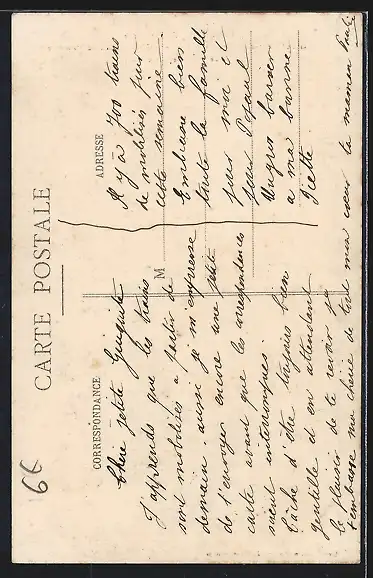 CARTE POSTALE
CORRESPONDANCE
Chère petite Guiguite
J'apprends que les trains
sont mobilisés a partir de
demain. aussi je m'empresse
de t'envoyer encore une petite
carte avant que les correspondances
soient interrompues.
Tâche d'être toujours bien
gentille et en attendant
le plaisir de te revoir je
t'embrasse ma chérie de tout mon cœur ta maman
M
ADRESSE
Il y a 700 trains
de mobilisés pour
cette semaine
Embrasse bien
toute la famille
pour moi et
pour Papa
Un gros baiser
a ma bonne
Tiette
66